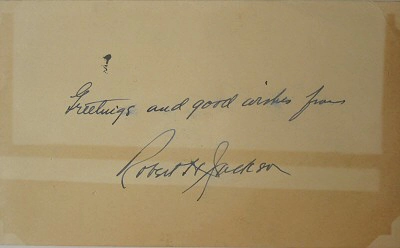 Greetings and good wishes from
Robert H Jackson